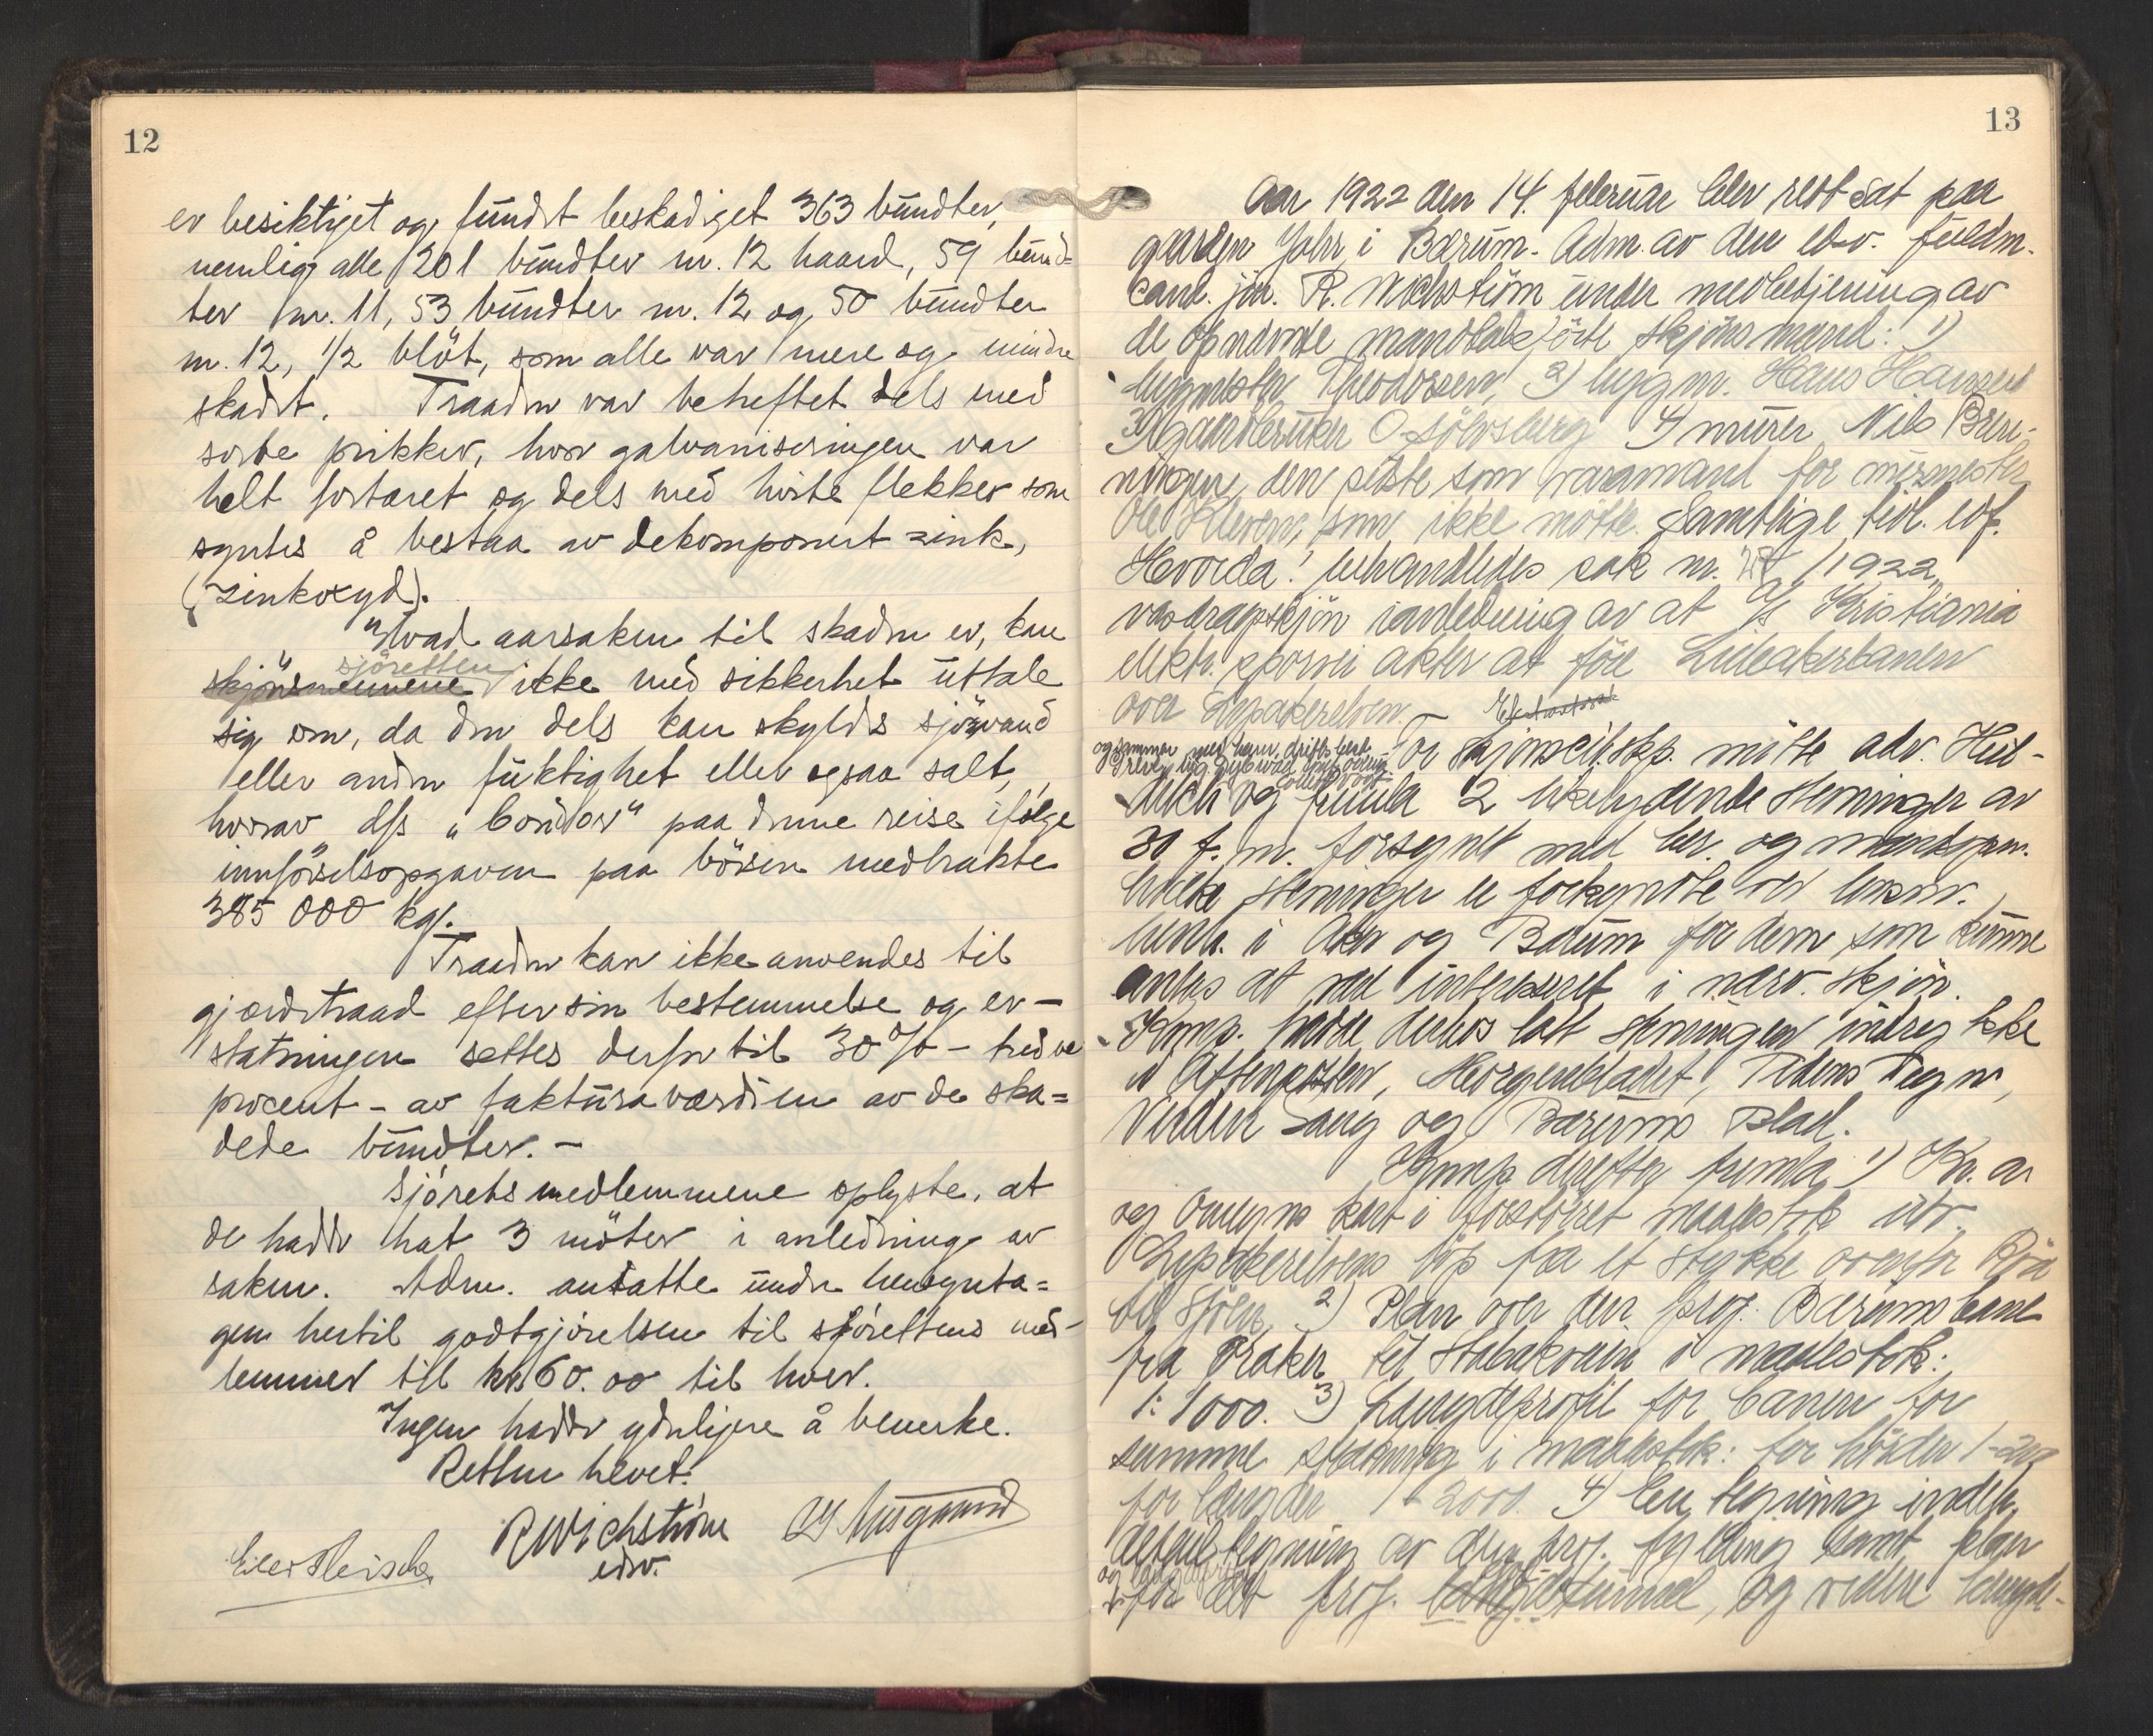 12
er besiktiget og fundet beskadiget 363 bundter,
nemlig alle 201 bundter nr. 12 haard, 59 bund=
ter nr. 11, 53 bundter nr. 12 og 50 bundter
nr. 12, 1/2 blöt, som alle var mere og mindre
skadet. Traaden var beheftet dels med
sorte prikker, hvor galvaniseringen var
helt fortæret og dels med hvite flekker som
syntes å bestaa av dekomponert zink,
(zinkoxyd).
Hvad aarsaken til skaden er, kan
skjønsmennene sjöretten ikke med sikkerhet uttale
sig om, da den dels kan skyldes sjövand
eller anden fuktighet eller ogsaa salt,
hvorav d/s "Condor" paa denne reise ifølge
innförselsopgaven paa börsen medbrakte
385 000 kg.
Traaden kan ikke anvendes til
gjærdetraad efter sin bestemmelse og er-
statningen settes derfor til 30 % - tredve
procent - av fakturaværdien av de ska=
dede bundter. -
Sjöretsmedlemmene oplyste, at
de hadde hat 3 möter i anledning av
saken. Adm. ansatte under hensynta=
gen hertil godtgjörelsen til sjörettens med-
lemmer til kr. 60.00 til hver.
Ingen hadde yderligere å bemerke.
Retten hevet.
RWichström
edsv.
13
Aar 1922 den 14. februar blev rett sat paa
gaarden Jahr i Bærum. Adm. av den edsv. fuldm.
cand. jur. R. Wichström under medbetjening av
de opnævnte mandtalsförte skjönsmænd: 1)
byggmester Theodorsen, 2) byggm. Hans Hansen
3) Gaardbruker O. Sölvsberg 4) murer Nils Bære-
ningen, den sidste som varamand for murmester
Ole Kleven, som ikke mötte. Samtlige tidl. edf.
Hvorda: behandledes sak nr. /1922,
vasdragsskjön i anledning av at A/S Kristiania
elektr. sporvei akter at före Lilleakerbanen
over Lysakerelven. -
For skjönseibskp. mötte adv. Heil-
og sammen med ham driftsbest.
og fremla 2 likelydende stevninger av
30 f. m. forsynt med ber. og mandsopn.
hvilke stevninger er forkyndte ved lensm.
betj. i Aker og Bærum for dem som kunne
antas at være interesseret i nærv. skjön.
Komp. hadde derhos latt stevningen indrykke
i Aftenposten, Morgenbladet, Tidens Tegn,
Verdens Gang og Bærums Blad.
Komp. derefter fremla 1) Kr.a
og Omegns kart i forstörret maalestok utv.
Lysakerelvens löp fra et stykke ovenfor
til Sjöen, 2) Plan over den proj. Bærumsbane
fra Öraker til Stabækveien i maalestok:
1:1000. 3) Længdeprofil for banen for
samme strækning i maalestok: for höider 1-200
for længder 1-2000. 4) En tegning indeh.
detailtegning av den proj. fylding samt plan
for det proj. tunnel, og videre længde-